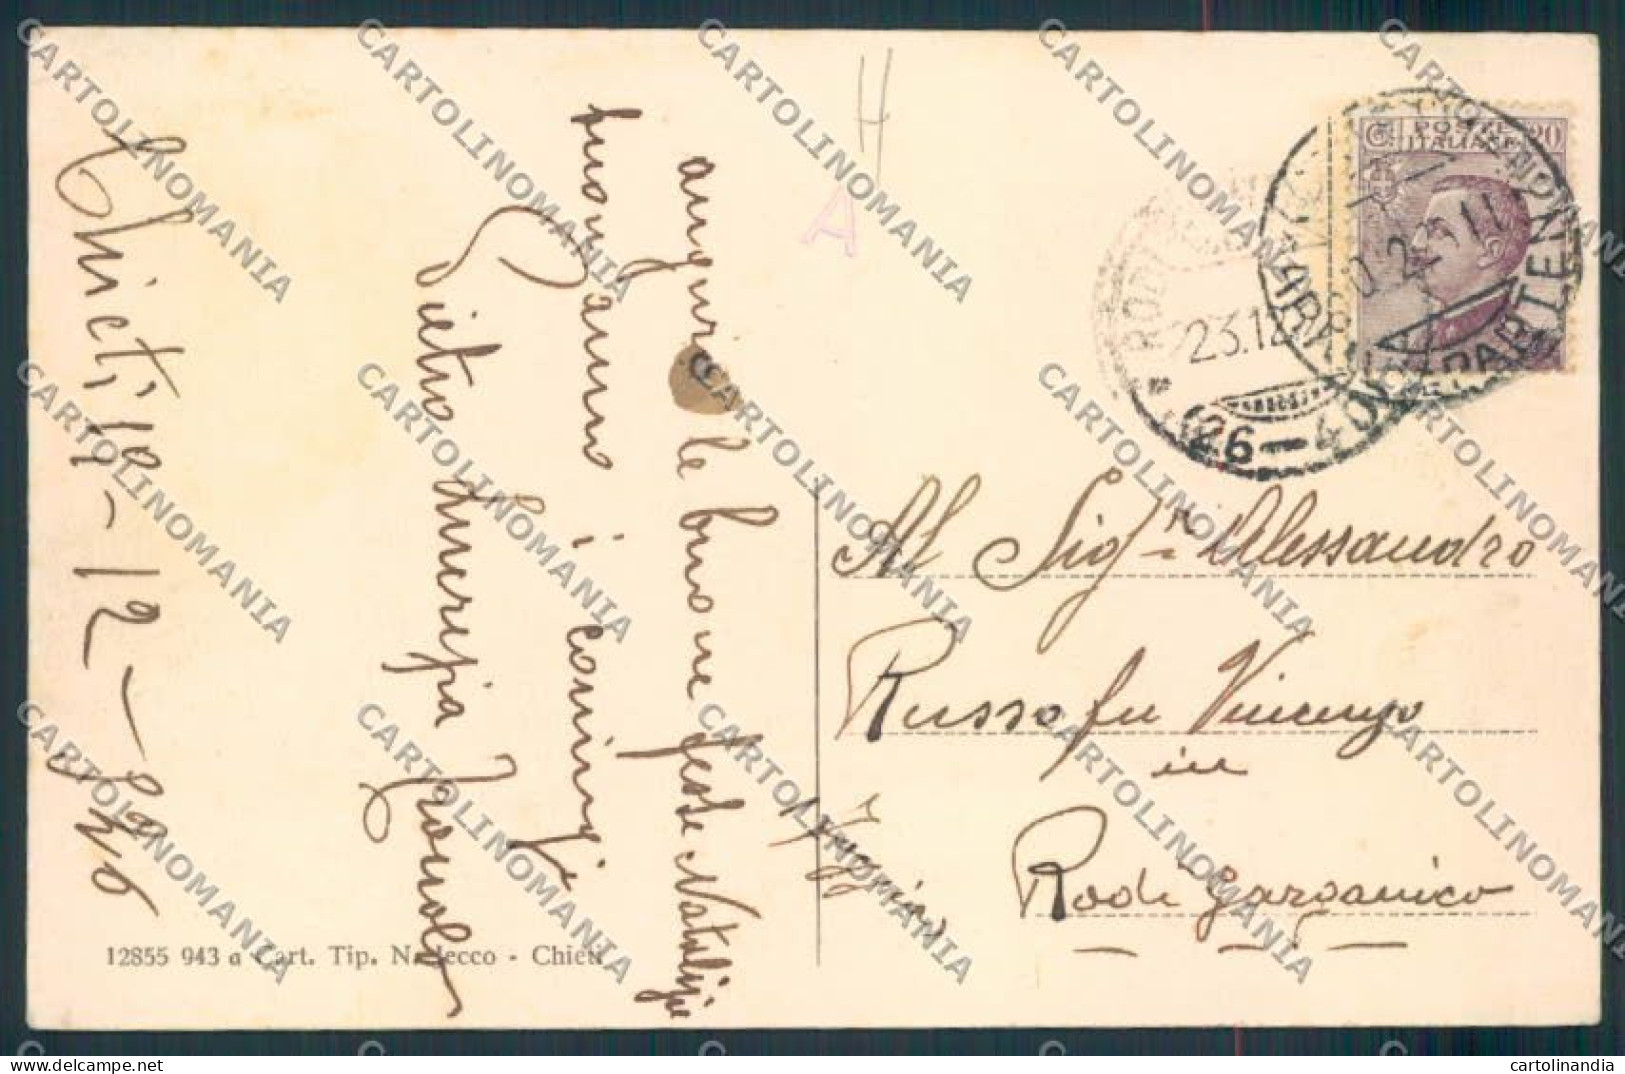 Chieti, 19-12-926
auguro le buone feste Natalizie
buon anno i coniugi
Pietro
C. POSTE ITALIANE 20
RODI
23.12
26 - 4
PARTENZE
A
Al Sigr Alessandro
Russo fu Vincenzo
in
Rodi Garganico
Foggia
12855 943 a Cart. Tip. N. Jecco - Chieti
CARTOLINOMANIA
cartolinandia